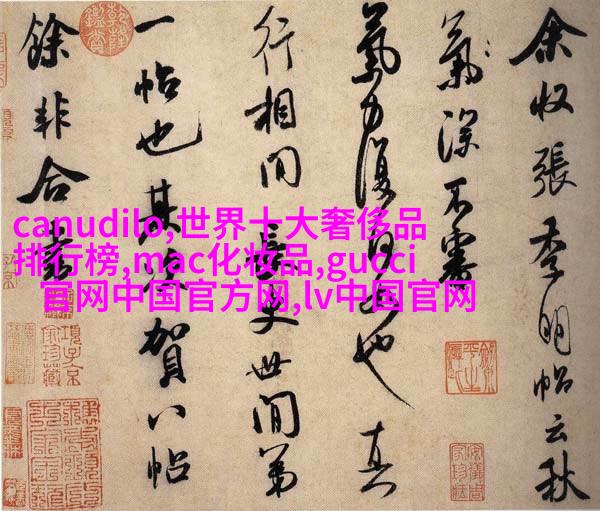 canudilo,世界十大奢侈品
排行榜,mac化妆品,gucci
官网中国官方网,lv中国官网
余收張季明帖云秋
氣深不審
氣力復何如也真
行相間長史世間第
一帖也其次賀八帖
餘非合書
項子京家珍藏